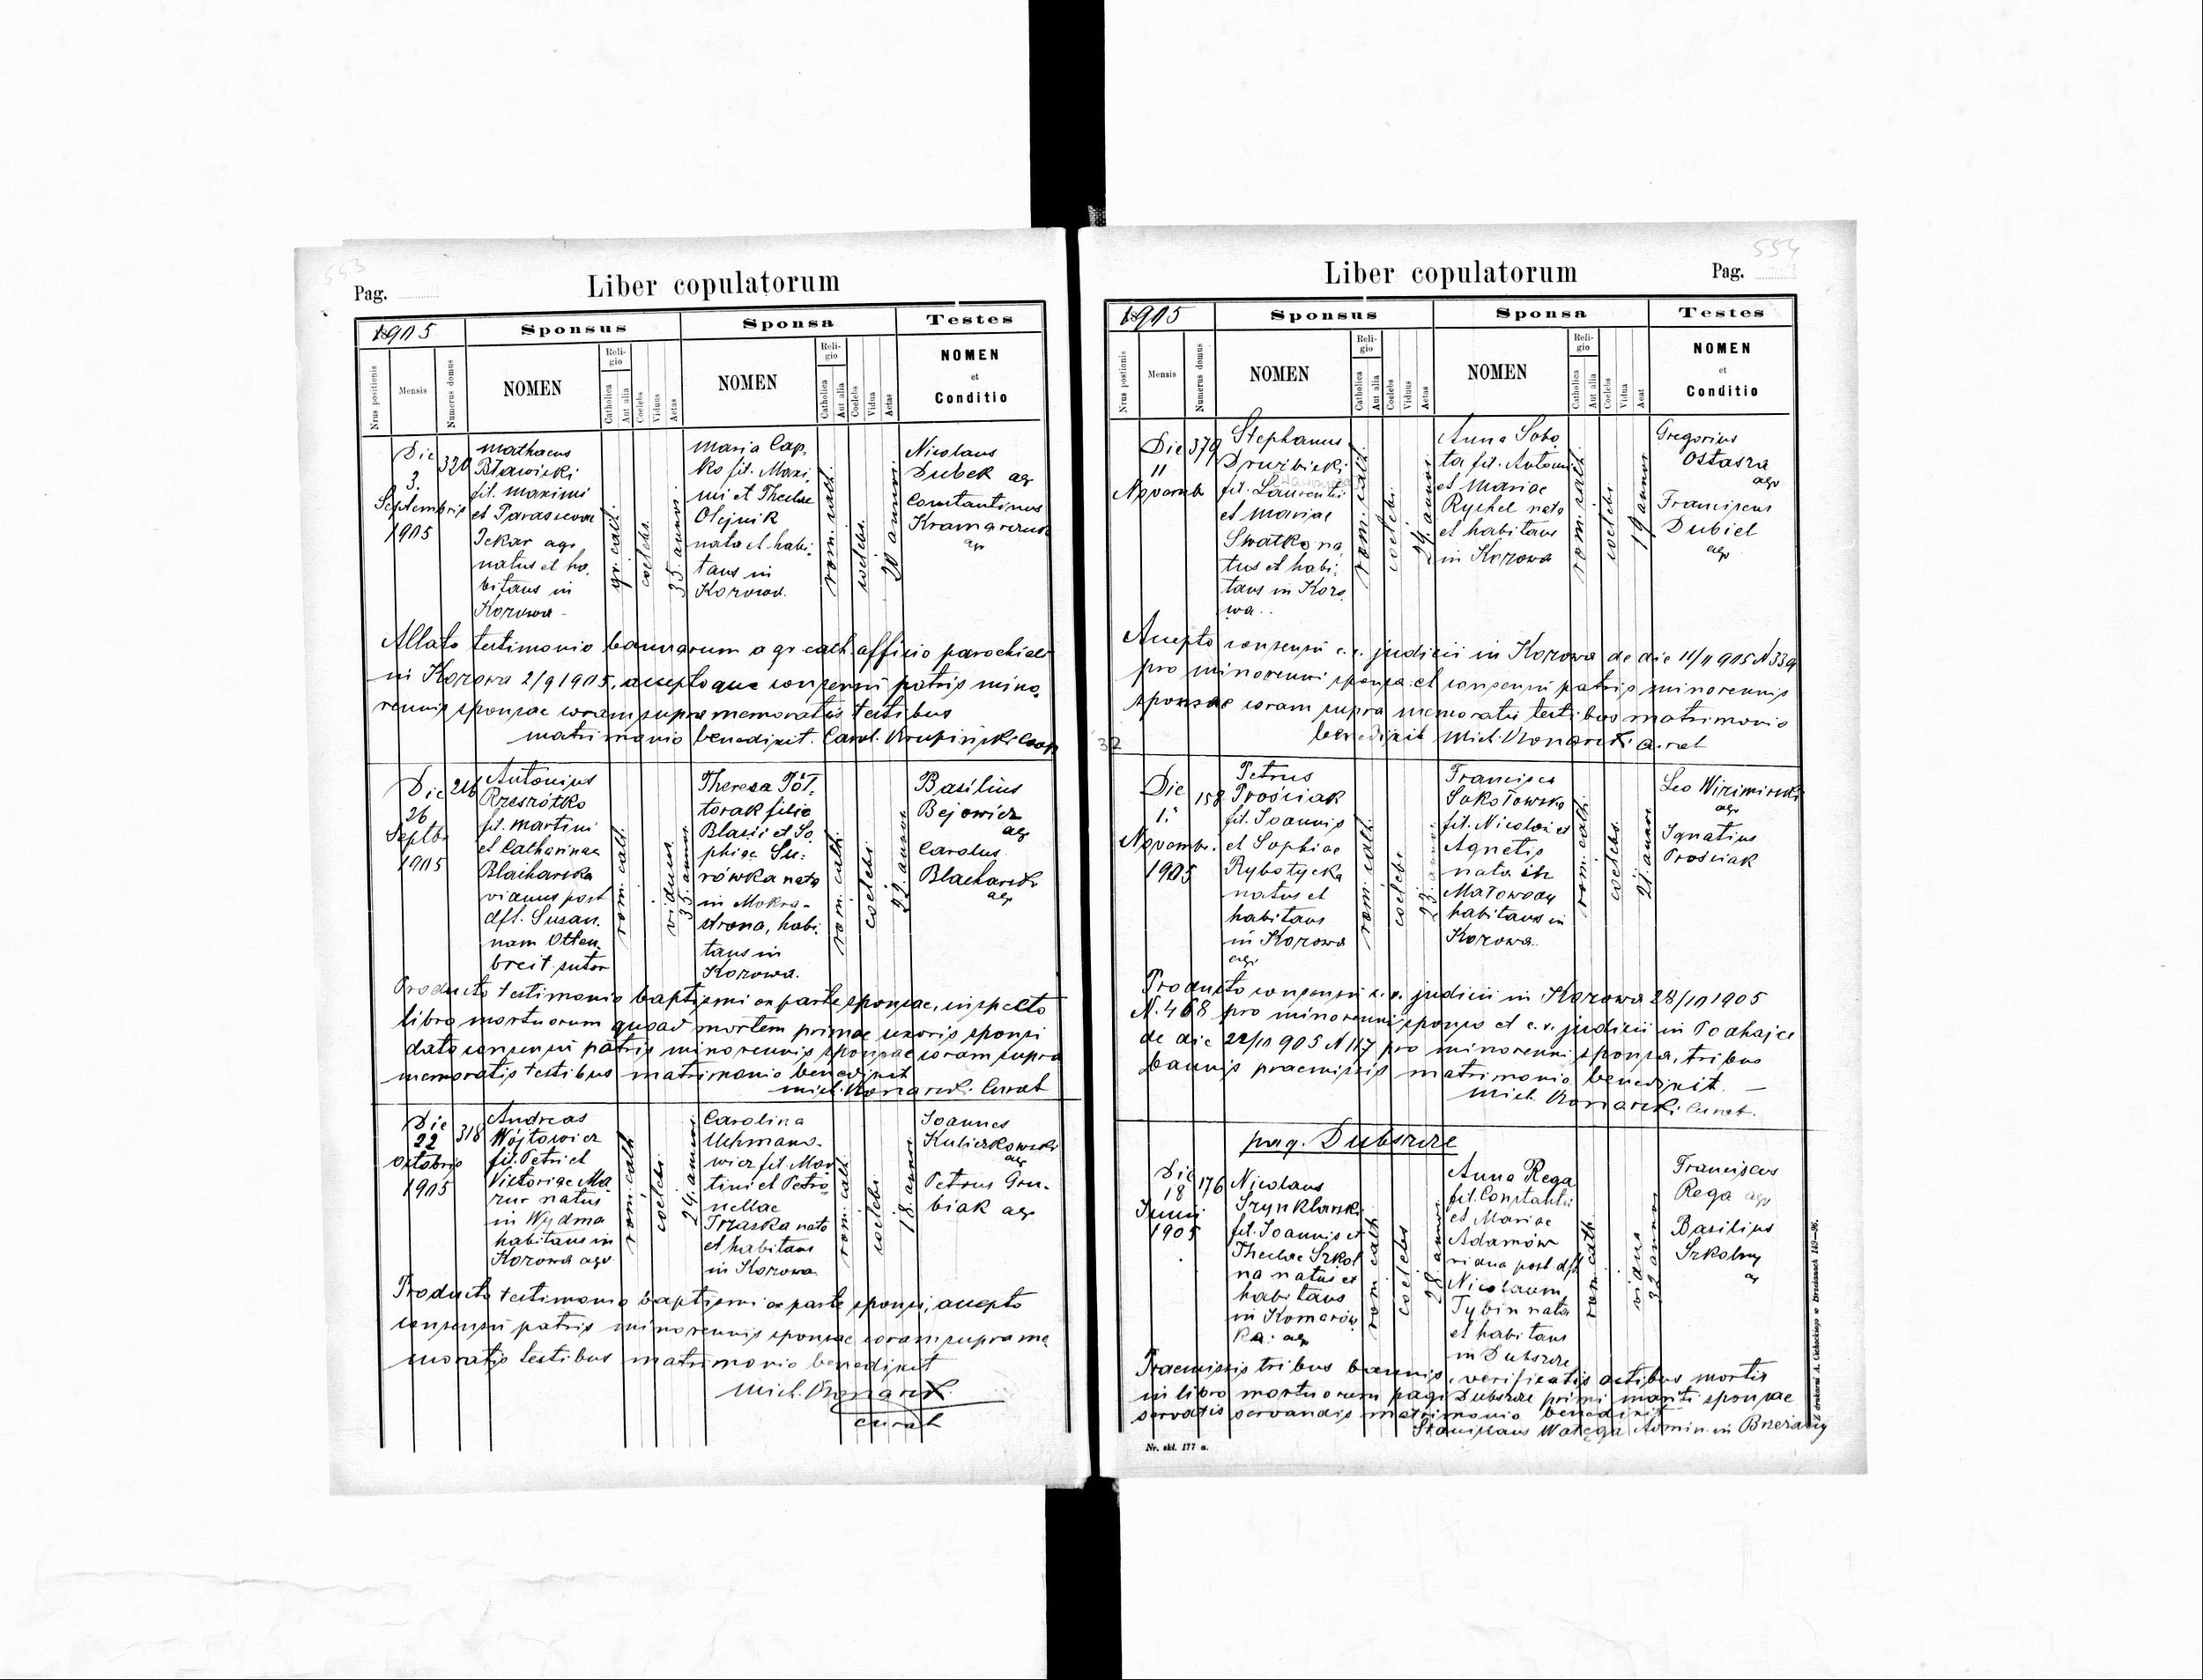 553
Pag.
Liber copulatorum
1905
Sponsus
Sponsa
Testes
Nrus positionis
Mensis
Numerus domus
NOMEN
Reli-
gio
Catholica
Aut alia
Coelebs
Viduus
Aetas
NOMEN
Reli-
gio
Catholica
Aut alia
Coelebs
Vidua
Aetas
NOMEN
et
Conditio
Die
3.
Septembris
1905
320
Mathaeus
Bławicki
fil. Maximi
et Parascevae
Jekar agr
natus et ha-
bitans in
Korowa
gr. cath.
coelebs.
35. annor.
Maria Cap-
ko fil. Maxi-
mi et Theclae
Olejnik
nata et habi-
tans in
Korowa.
rom. cath.
coelebs.
20 annor.
Nicolaus
Dubek agr
Constantinus
Kramarczuk
agr
Allato testimonio bannorum a gr. cath. officio parochiali
in Korowa 2/9 1905, acceptoque consensu patris mino-
rennis sponsae coram supra memoratis testibus
matrimonio benedixit. Carol. Krupiński Coop
Die
26
Septbr
1905
216
Antonius
Rzeszótko
fil. Martini
et Catharinae
Blacharska
viduus post
dft. Susan-
nam Otten-
breit sutor
rom. cath.
viduus
35. annor.
Theresa Pół-
torak filia
Blasii et So-
phiae Su-
rówka nata
in Mokra-
strona, habi-
tans in
Korowa.
rom. cath.
coelebs.
22. annor.
Basilius
Bejowicz
agr
Carolus
Blacharski
agr
Producto testimonio baptismi ex parte sponsae, inspecto
libro mortuorum quoad mortem primae uxoris sponsi
dato consensu patris minorennis sponsae coram supra
memoratis testibus matrimonio benedixit
Mich. Konarski. Curat
Die
22
Octobris
1905
318
Andreas
Wójtowicz
fil. Petri et
Victoriae Ma-
zur natus
in Wydma
habitans in
Korowa agr
rom. cath.
coelebs.
24. annor.
Carolina
Uchmano-
wicz fil. Mar-
tini et Petro-
nellae
Trzaska nata
et habitans
in Korowa
rom. cath.
coelebs.
18. annor.
Joannes
Kuliczkowski
agr
Petrus Gru-
biak agr
Producto testimonio baptismi ex parte sponsi, accepto
consensu patris minorennis sponsae coram supra me-
moratis testibus matrimonio benedixit
Mich. Konarski
curat
554
Liber copulatorum
Pag.
1905
Sponsus
Sponsa
Testes
Nrus postionis
Mensis
Numerus domus
NOMEN
Reli-
gio
Catholica
Aut alia
Coelebs
Viduus
Aetas
NOMEN
Reli-
gio
Catholica
Aut alia
Coelebs
Vidua
Aeat
NOMEN
et
Conditio
Die
11
Novemb
379
Stephanus
Drużbicki
fil. Laurentii
et Mariae
Swatko na-
tus et habi-
tans in Koro-
wa..
rom. cath.
coelebs.
24. annor.
Anna Sobo-
ta fil. Antonii
et Mariae
Rychel nata
et habitans
in Korowa
rom. cath.
coelebs.
19 annor
Gregorius
Ostasza
agr
Franciscus
Dubiel
agr
Accepto consensu c. r. judicii in Korowa de die 11/11 905 N 339
pro minorenni sponso et consensu patris minorennis
sponsae coram supra memoratis testibus matrimonio
benedixit Mich. Konarski curat
32
Die
1.
Novembr.
1905
158
Petrus
Prościak
fil. Joannis
et Sophiae
Rybotycka
natus et
habitans
in Korowa
agr
rom. cath.
coelebs
23 annor.
Francisca
Sokołowska
fil. Nicolai et
Agnetis
nata in
Małowody
habitans in
Korowa.
rom. cath.
coelebs.
21. annor.
Leo Wizimirski
agr
Ignatius
Prościak
Producto consensu c. r. judicii in Korowa 28/10 1905
N. 468 pro minorenni sponso et c. r. judicii in Podhajce
de die 22/10 905 N 117 pro minorenni sponsa, tribus
bannis praemissis matrimonio benedixit.
Mich. Konarski Curat.
pag. Dubszcze
Die
18
Junii
1905
176
Nicolaus
Szynklarski
fil. Joannis et
Theclae Szkol
na natus et
habitans
in Komarów
ka. agr
rom. cath
coelebs
28. annor.
Anna Rega
fil. Constantii
et Mariae
Adamów
vidua post dft
Nicolaum
Tybin nata
et habitans
in Dubszcze
rom. cath.
vidua
32 annor
Franciscus
Rega agr
Basilius
Szkolny
agr
Praemissis tribus bannis, verificatis actibus mortis
in libro mortuorum pagi Dubszcze primi mariti sponsae
servatis servandis matrimonio benedixit
Stanislaus Wałęga Admin. in Brzeżany
Nr. skl. 177 a.
Z drukarni A. Cichockiego w Brzeżanach 149—96.